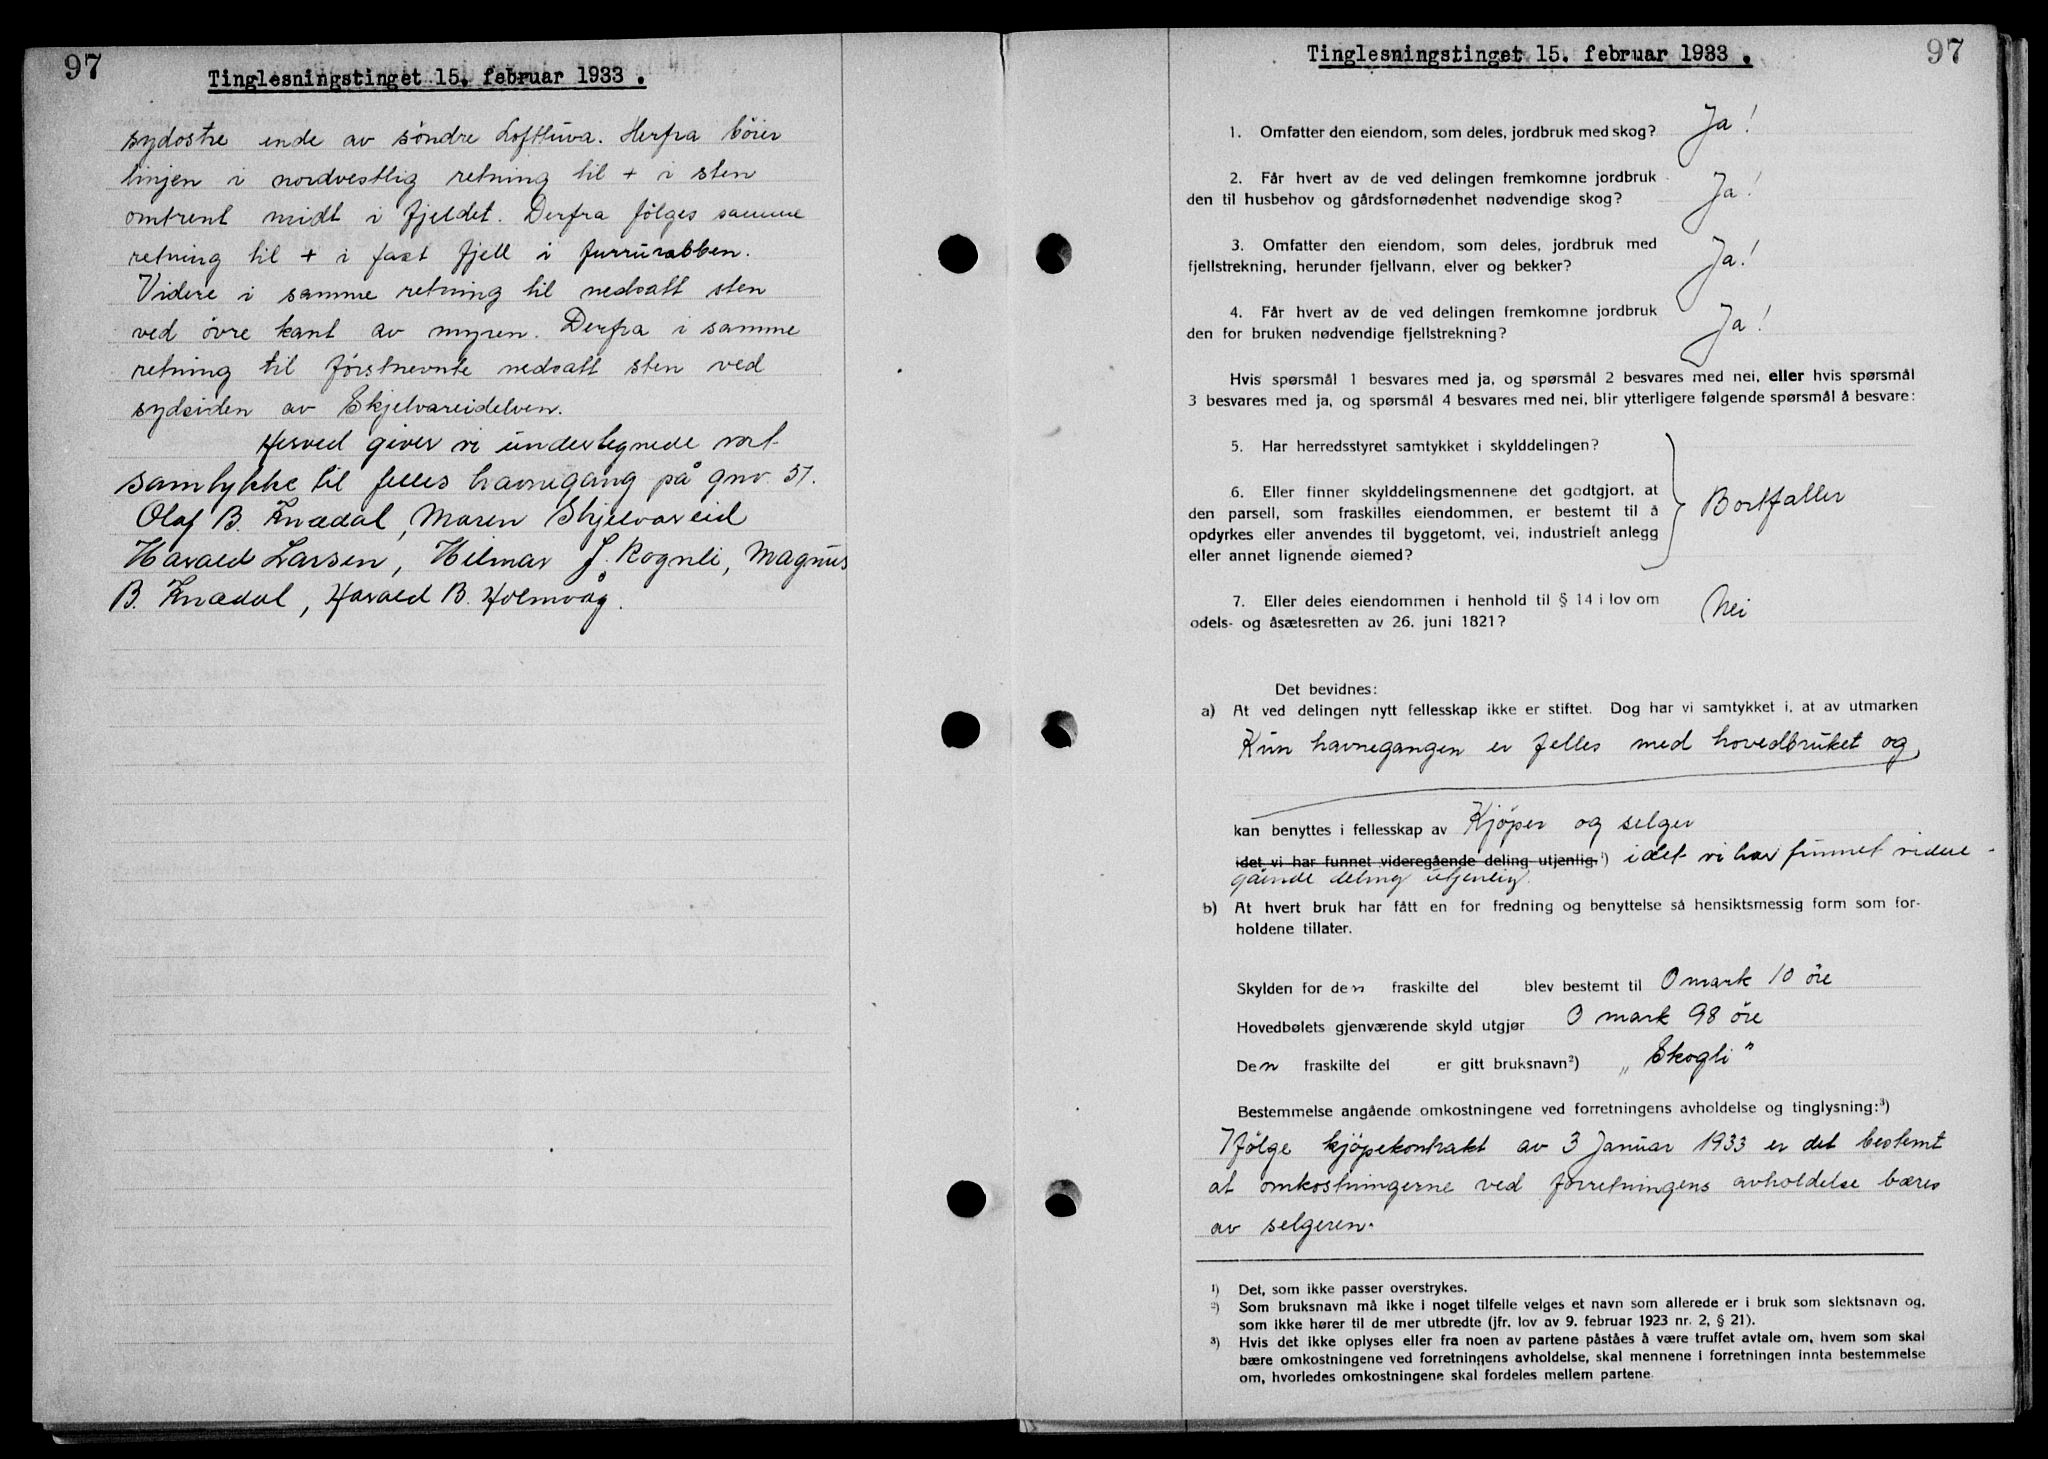 97
Tinglesningstinget 15. februar 1933.
sydostre ende av söndre Lofttuva. Herfra böier
linjen i nordvestlig retning til + i sten
omtrent midt i fjeldet. Derfra fölges samme
retning til + i fast fjell i furrurabben.
Videre i samme retning til nedsatt sten
ved övre kant av myren. Derfra i samme
retning til förstnevnte nedsatt sten ved
sydsiden av Skjelvareidelven.
Herved giver vi undertegnede vort
samtykke til felles havnegang på gnr 57.
Olaf B. Knædal, Maren Skjelvareid
Harald Larsen, Hilmar J. Rognli, Magnus
B. Knædal, Harald B. Holmvåg.
97
Tinglesningstinget 15. februar 1933.
1. Omfatter den eiendom, som deles, jordbruk med skog? Ja!
2. Får hvert av de ved delingen fremkomne jordbruk
den til husbehov og gårdsfornødenhet nødvendige skog? Ja!
3. Omfatter den eiendom, som deles, jordbruk med
fjellstrekning, herunder fjellvann, elver og bekker? Ja!
4. Får hvert av de ved delingen fremkomne jordbruk
den for bruken nødvendige fjellstrekning? Ja!
Hvis spørsmål 1 besvares med ja, og spørsmål 2 besvares med nei, eller hvis spørsmål
3 besvares med ja, og spørsmål 4 besvares med nei, blir ytterligere følgende spørsmål å besvare:
5. Har herredsstyret samtykket i skylddelingen?
6. Eller finner skylddelingsmennene det godtgjort, at
den parsell, som fraskilles eiendommen, er bestemt til å Bortfaller
opdyrkes eller anvendes til byggetomt, vei, industrielt anlegg
eller annet lignende øiemed?
7. Eller deles eiendommen i henhold til § 14 i lov om Nei
odels- og åsætesretten av 26. juni 1821?
Det bevidnes:
a) At ved delingen nytt fellesskap ikke er stiftet. Dog har vi samtykket i, at av utmarken
Kun havnegangen er felles med hovedbruket og
kan benyttes i fellesskap av Kjöper og selger
idet vi har funnet videregående deling utjenlig.¹) idet vi har funnet videre-
gående deling utjenlig.
b) At hvert bruk har fått en for fredning og benyttelse så hensiktsmessig form som for-
holdene tillater.
Skylden for den fraskilte del blev bestemt til 0 mark 10 öre
Hovedbølets gjenværende skyld utgjør 0 mark 98 öre
Den fraskilte del er gitt bruksnavn²) „Skogli"
Bestemmelse angående omkostningene ved forretningens avholdelse og tinglysning:³)
Ifölge kjöpekontrakt av 3 Januar 1933 er det bestemt
at omkostningerne ved forretningens avholdelse bæres
av selgeren.
¹) Det, som ikke passer overstrykes.
²) Som bruksnavn må ikke i noget tilfelle velges et navn som allerede er i bruk som slektsnavn og,
som ikke hører til de mer utbredte (jfr. lov av 9. februar 1923 nr. 2, § 21).
³) Hvis det ikke oplyses eller fra noen av partene påståes å være truffet avtale om, hvem som skal
bære omkostningene ved forretningens avholdelse, skal mennene i forretningen innta bestemmelse
om, hvorledes omkostningene skal fordeles mellem partene.